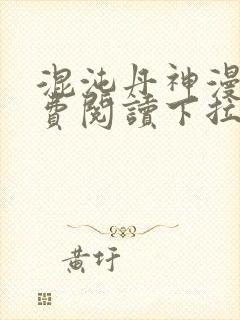 混沌丹神漫
費閱讀下拉
黃圩